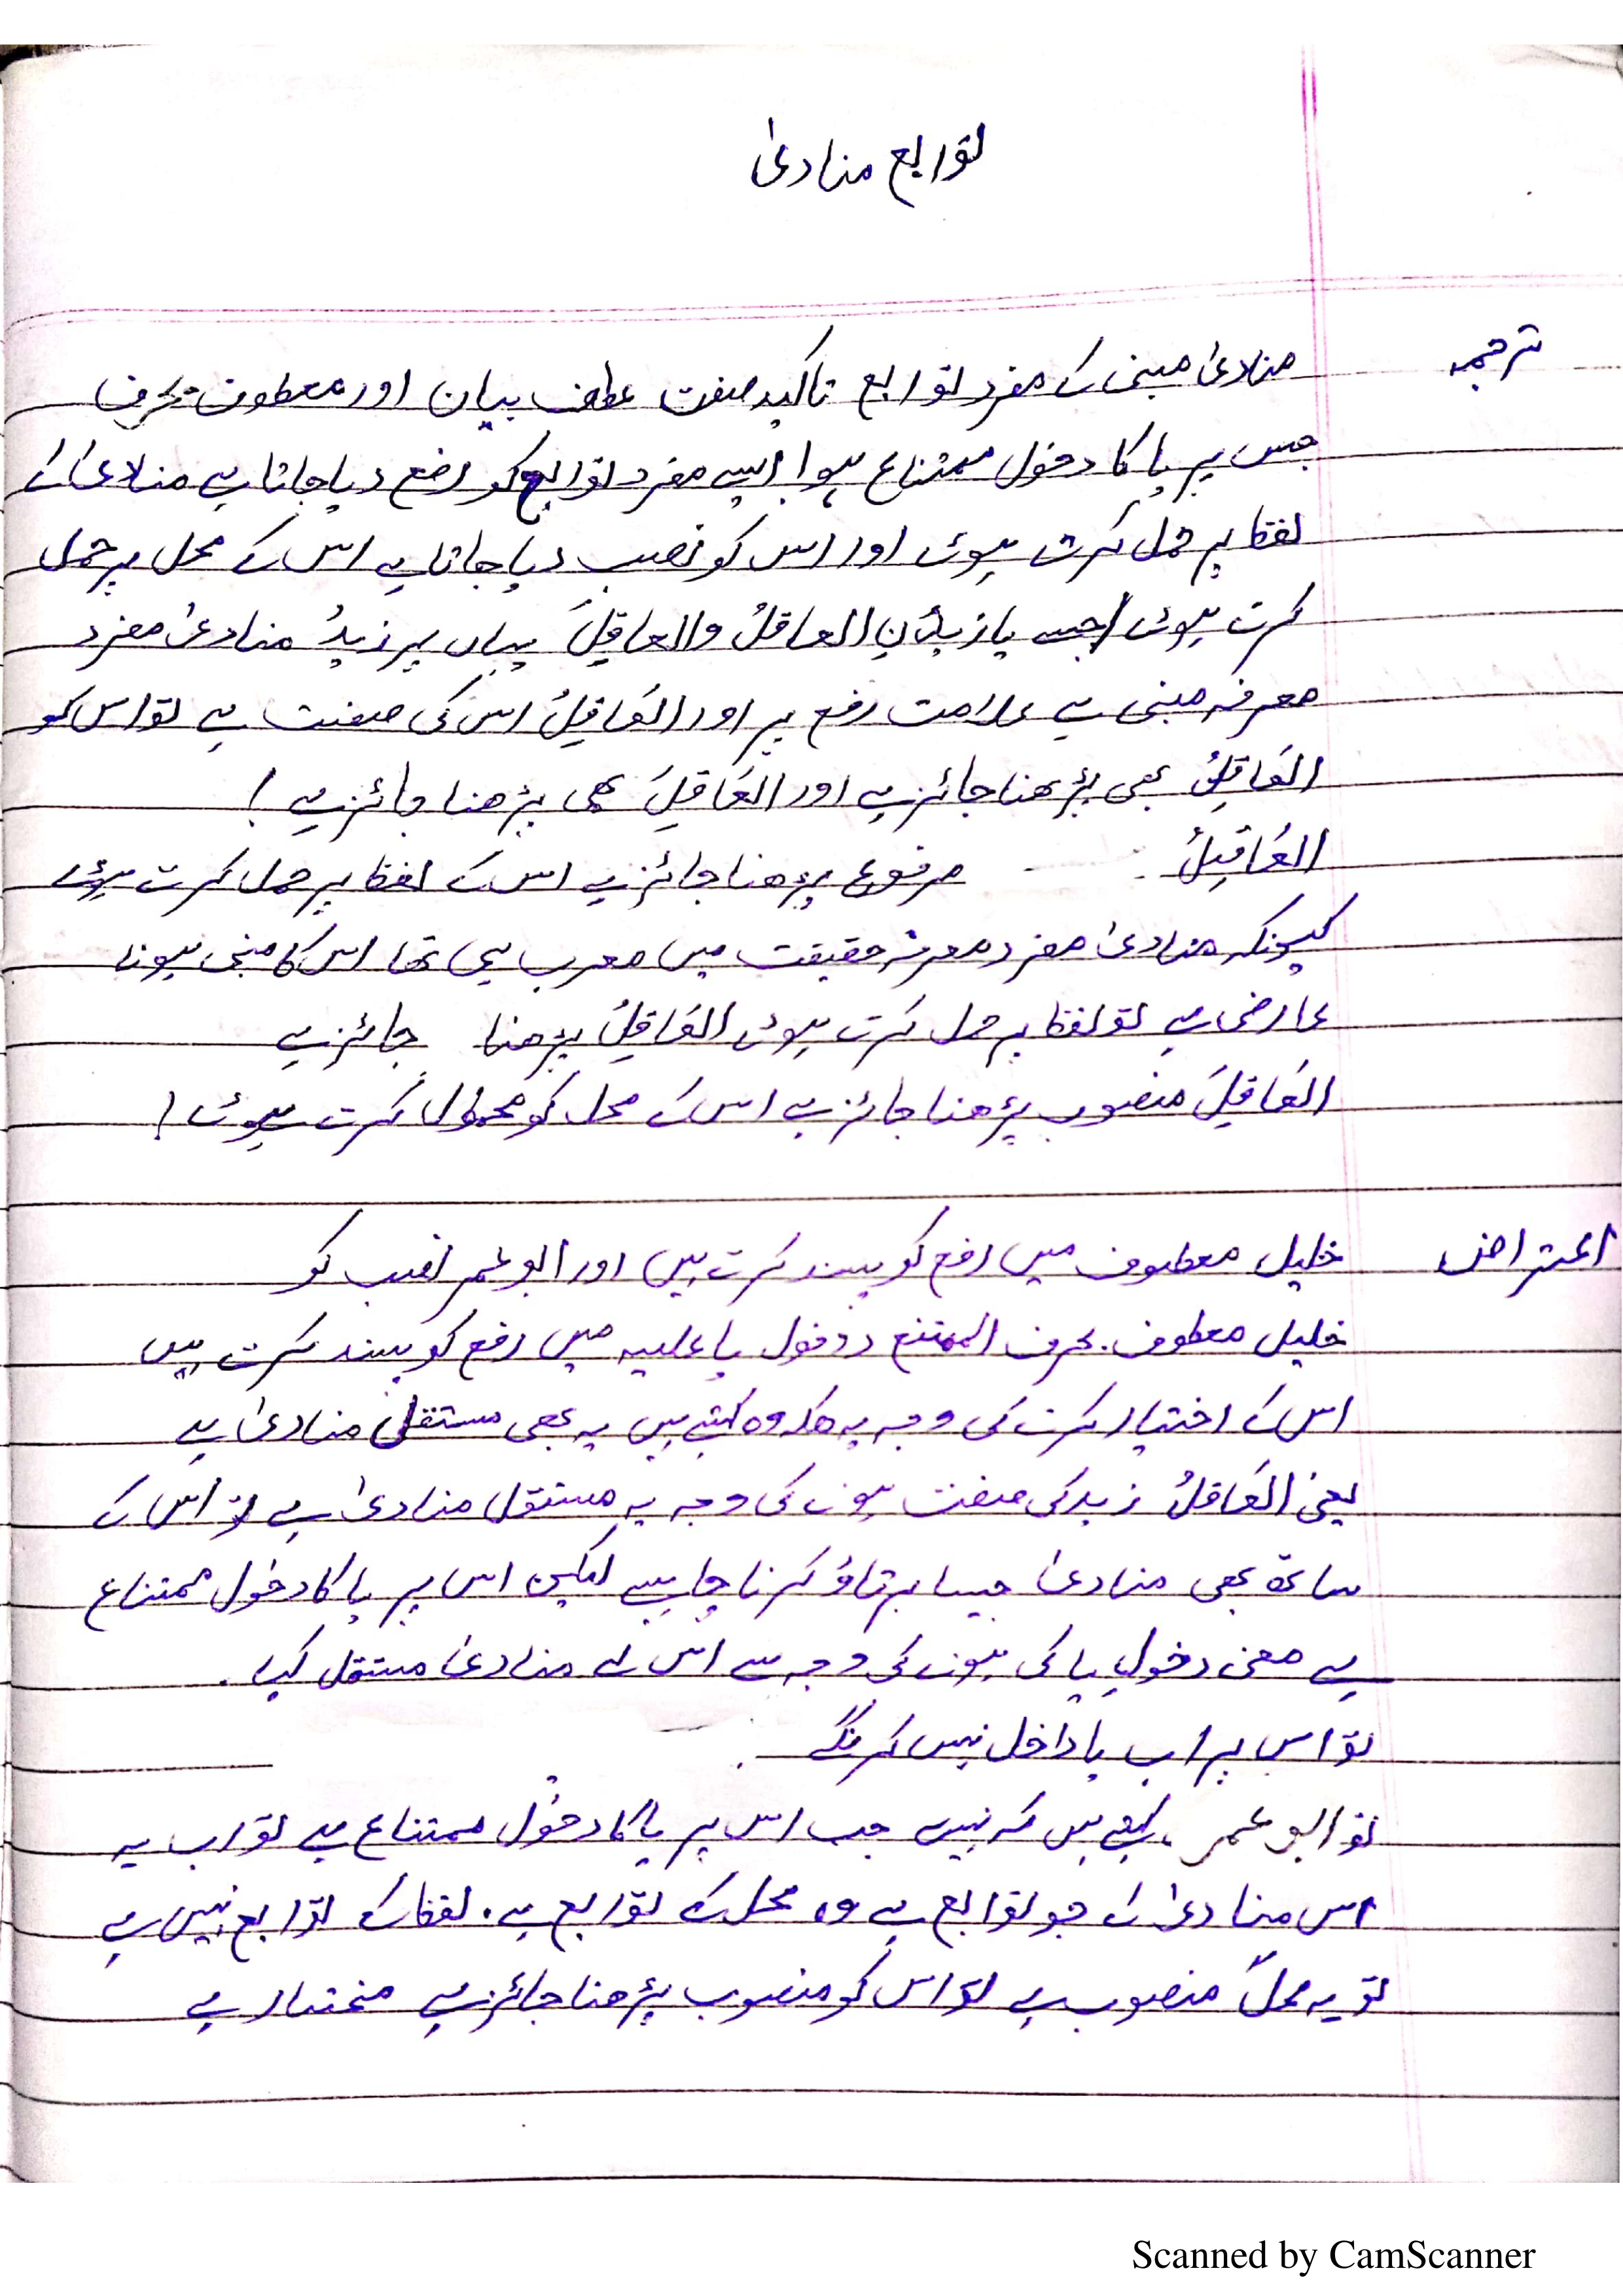 توابع منادیٰ
ترجمہ
منادیٰ مبنی کے مفرد توابع تاکید صفت عطف بیان اور معطوف بحرف
جس پر یا کا دخول ممتناع ہو! ایسے مفرد توابع کو رفع دیا جاتا ہے منادیٰ کے
لفظ پر حمل کرتے ہوئے اور اس کو نصب دیا جاتا ہے اس کے محل پر حمل
کرتے ہوئے / جیسے یا زیدُنِ العاقلُ والعاقِلَ یہاں پر زیدُ منادیٰ مفرد
معرفہ مبنی ہے علامت رفع پر اور العَاقِلُ اس کی صفت ہے تو اس کو
العَاقِلُ بھی پڑھنا جائز ہے اور العَاقِلَ بھی پڑھنا جائز ہے !
العَاقِلُ مرفوع پڑھنا جائز ہے اس کے لفظ پر حمل کرتے ہوئے
کیونکہ منادیٰ مفرد معرفہ حقیقت میں معرب ہی تھا اس کا مبنی ہونا
عارضی ہے تو لفظ پر حمل کرتے ہوئے العَاقِلُ پڑھنا جائز ہے
العَاقِلَ منصوب پڑھنا جائز ہے اس کے محل کو محمول کرتے ہوئے !
اعتراض
خلیل معطوف میں رفع کو پسند کرتے ہیں اور ابو عمر نصب کو
خلیل معطوف بحرف الممتنع دخول یا علیہ میں رفع کو پسند کرتے ہیں
اس کے اختیار کرنے کی وجہ یہ وہ کہتے ہیں یہ بھی مستقل منادیٰ ہے
یعنی العَاقلُ زید کی صفت ہونے کی وجہ یہ مستقل منادیٰ ہے تو اس کے
ساتھ بھی منادیٰ جیسا برتاؤ کرنا چاہیے لیکن اس پر یا کا دخول ممتناع
ہے معنی دخولِ یا کی ہونے کی وجہ سے اس لے منادیٰ مستقل کہا .
تو اس پر اب یا داخل نہیں کرینگے
تو ابو عمر کہتے ہیں کہ نہیں جب اس پر یا کا دخول ممتناع ہے تو اب یہ
اس منادیٰ کے جو توابع ہے وہ محل کے توابع ہے . لفظ کے توابع نہیں ہے
تو یہ محلً منصوب ہے تو اس کو منصوب پڑھنا جائز ہے مختار ہے
Scanned by CamScanner